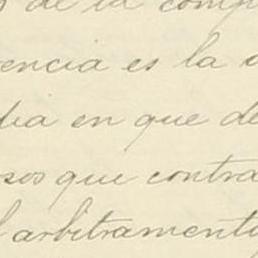 de la comp
encia es la
en que de
sos que contra
arbitramento